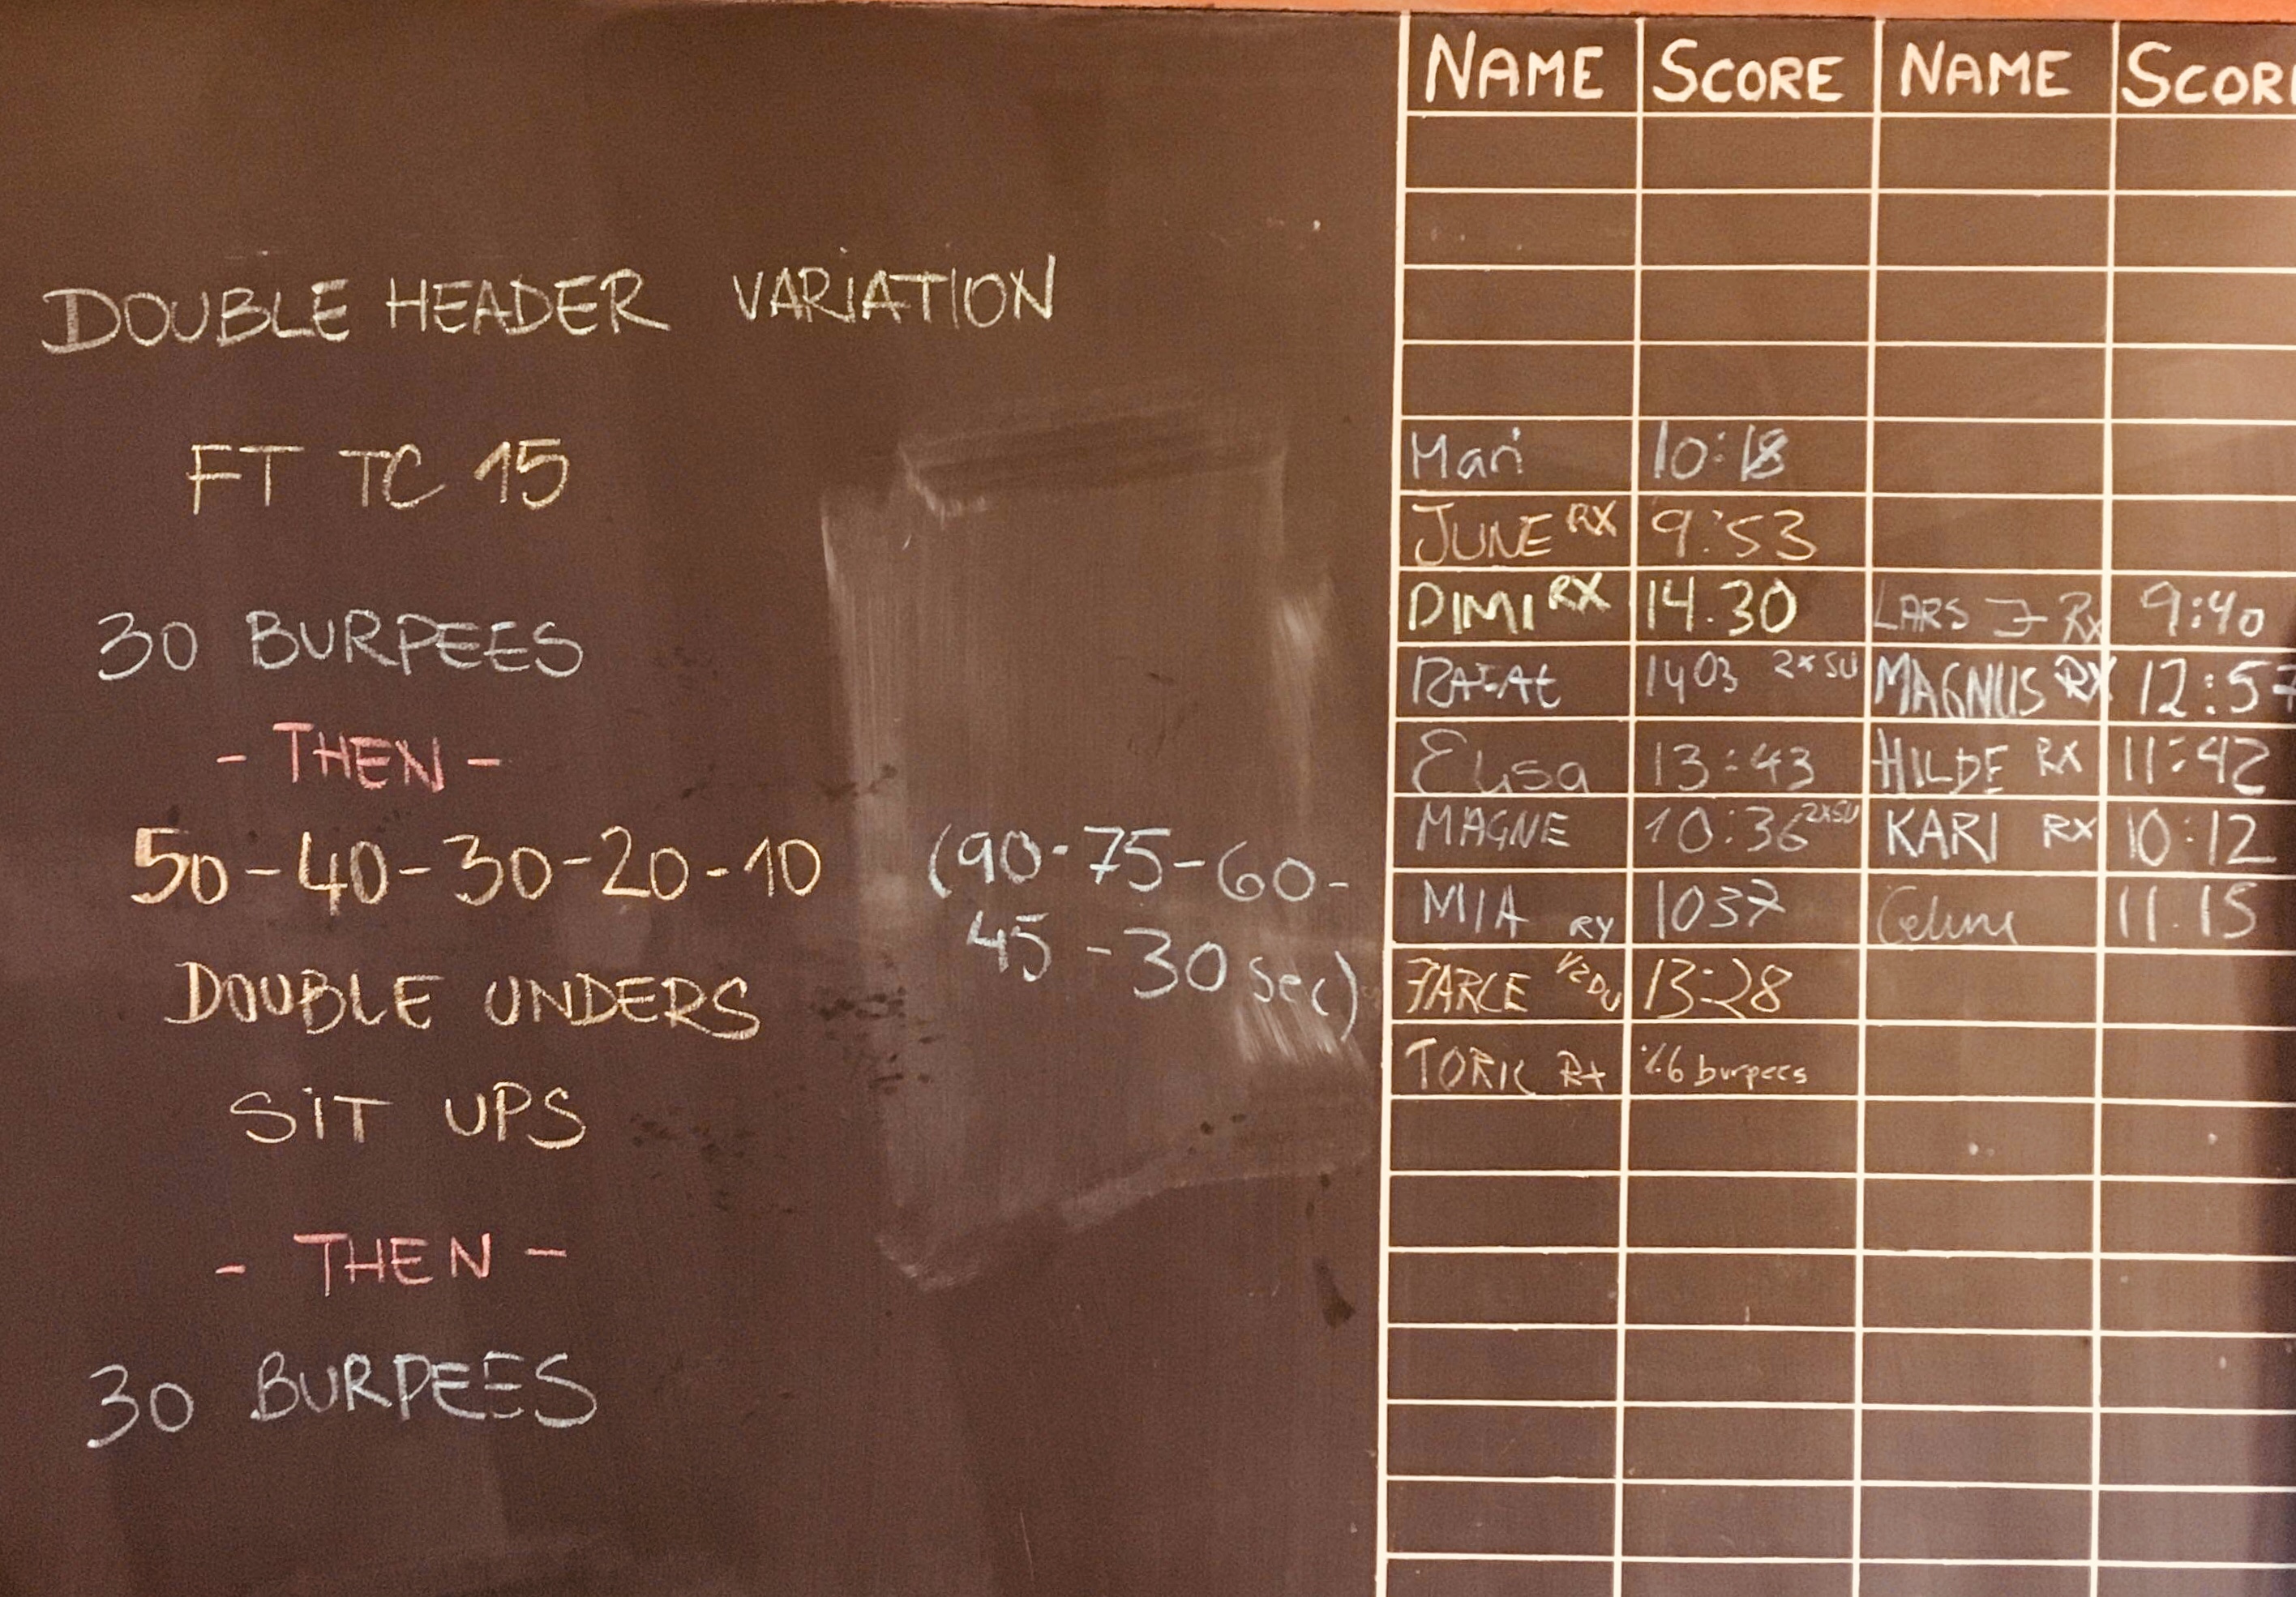 DOUBLE HEADER VARIATION
FT TC 15
30 BURPEES
- THEN -
50-40-30-20-10
(90-75-60-
45-30 sec)
DOUBLE UNDERS
SIT UPS
- THEN -
30 BURPEES
NAME SCORE NAME SCORE
Mari 10:18
JUNE RX 9:53
DIMI RX 14.30 LARS J RX 9:40
1403 2xSU MAGNUS RX 12:57
Elisa 13:43 HILDE RX 11:42
MAGNE 10:36 2xSU KARI RX 10:12
MIA RX 1037 Celine 11.15
1/2 DU 13:28
burpees